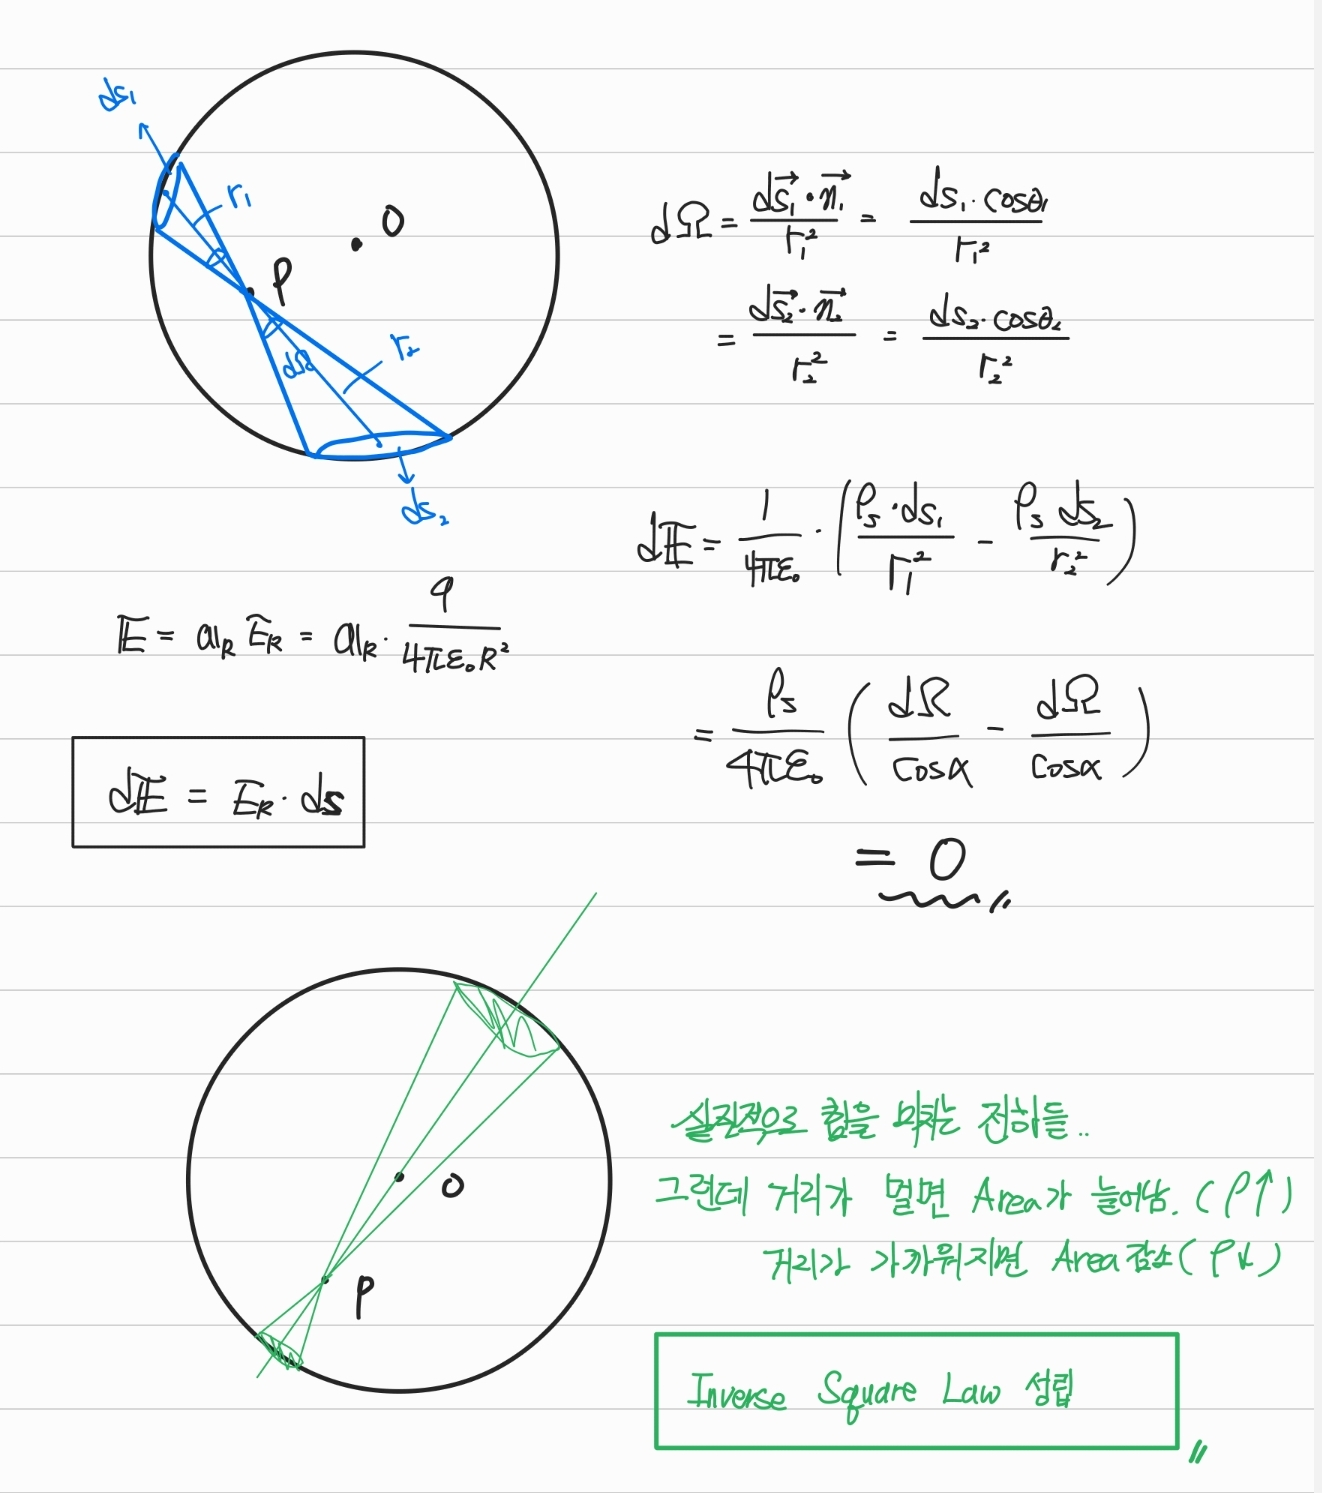 ds₁
r₁
O
P
r₂
dΩ
ds₂
dΩ = ds₁·n₁ / r₁² = ds₁·cosθ₁ / r₁²
= ds₂·n₂ / r₂² = ds₂·cosθ₂ / r₂²
dE = 1/4πε₀ · (ρs·ds₁ / r₁² − ρs ds₂ / r₂²)
= ρs/4πε₀ (dΩ/cosα − dΩ/cosα)
= 0
E = aR ER = aR · q/4πε₀R²
dE = ER · ds
O
P
실질적으로 힘을 미치는 전하들..
그런데 거리가 멀면 Area가 늘어남. (ρ↑)
거리가 가까워지면 Area 감소 (ρ↓)
Inverse Square Law 성립